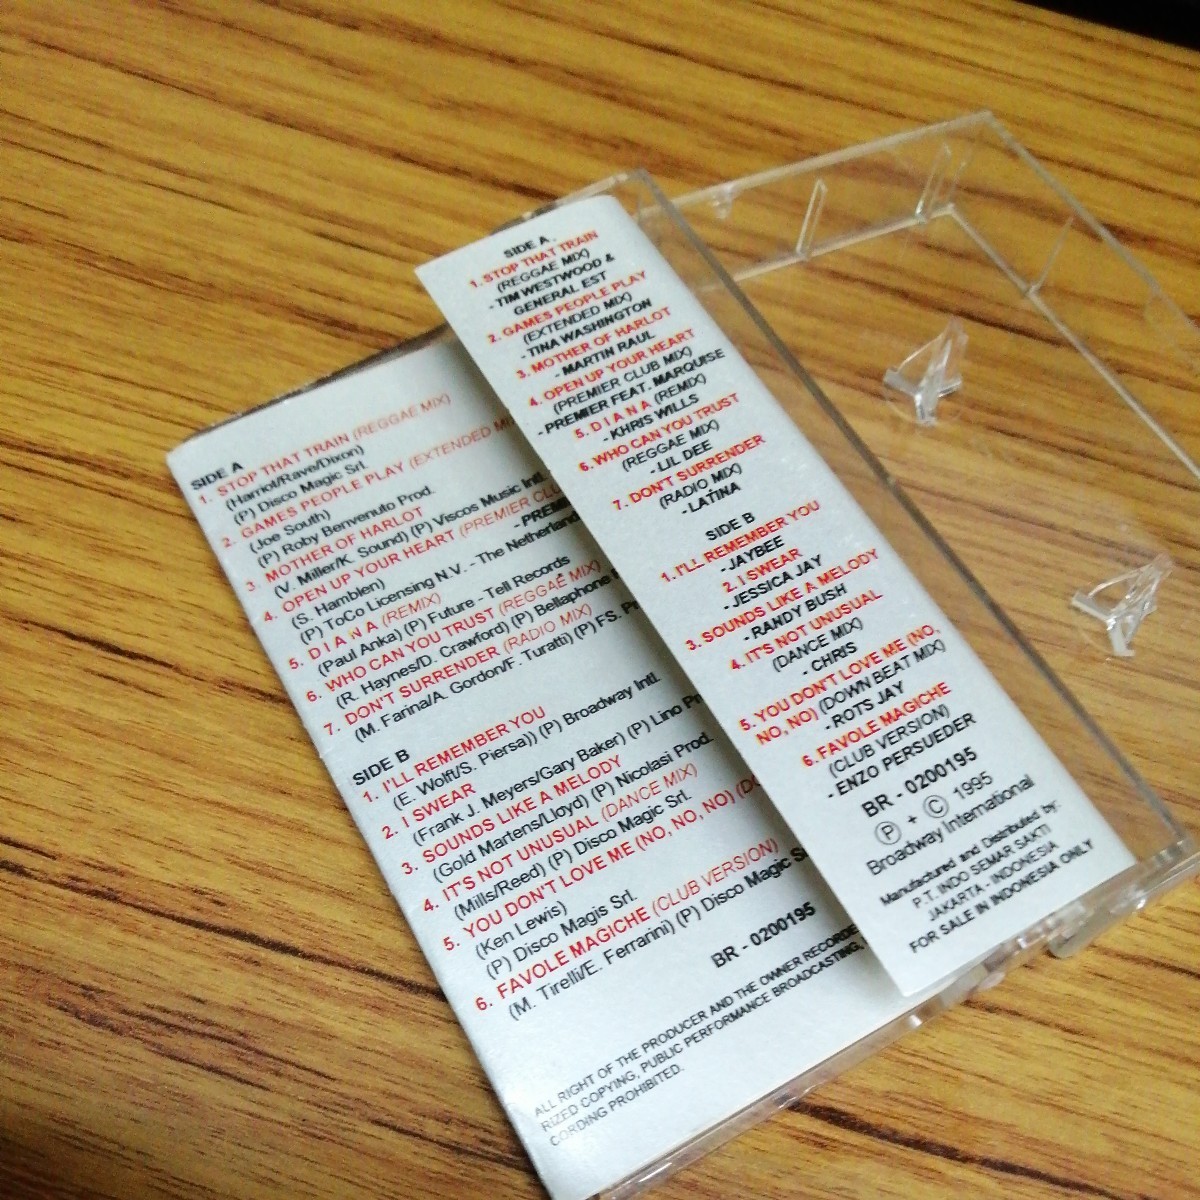 SIDE A
1. STOP THAT TRAIN (REGGAE MIX)
(Harriot/Rave/Dixon)
(P) Disco Magic Srl.
2. GAMES PEOPLE PLAY (EXTENDED
(Joe South)
(P) Roby Benvenuto Prod.
3. MOTHER OF HARLOT
(V. Miller/K. Sound) (P) Viscos Music Intl.
4. OPEN UP YOUR HEART (PREMIER
(S. Hamblen)
(P) ToCo Licensing N.V. - The
5. D I A N A (REMIX)
(Paul Anka) (P) Future - Tell Records
6. WHO CAN YOU TRUST (REGGAE MIX)
(R. Haynes/D. Crawford) (P) Bellaphone
7. DON'T SURRENDER (RADIO MIX)
(M. Farina/A. Gordon/F. Turatti) (P) FS.
SIDE B
1. I'LL REMEMBER YOU
(E. Wolff/S. Piersa)) (P) Broadway Intl.
2. I SWEAR
(Frank J. Meyers/Gary Baker) (P) Lino
3. SOUNDS LIKE A MELODY
(Gold Martens/Lloyd) (P) Nicolasi Prod.
4. IT'S NOT UNUSUAL (DANCE MIX)
(Mills/Reed) (P) Disco Magic Srl.
5. YOU DON'T LOVE ME (NO, NO, NO)
(Ken Lewis)
(P) Disco Magis Srl.
6. FAVOLE MAGICHE (CLUB VERSION)
(M. Tirelli/E. Ferrarini) (P) Disco Magic
BR - 0200195
ALL RIGHT OF THE PRODUCER AND THE OWNER
RIZED COPYING, PUBLIC PERFORMANCE BROADCASTING,
CORDING PROHIBITED.
SIDE A .
1. STOP THAT TRAIN
(REGGAE MIX)
- TIM WESTWOOD &
GENERAL EST
2. GAMES PEOPLE PLAY
(EXTENDED MIX)
- TINA WASHINGTON
3. MOTHER OF HARLOT
- MARTIN RAUL
4. OPEN UP YOUR HEART
(PREMIER CLUB MIX)
- PREMIER FEAT. MARQUISE
5. D I A N A (REMIX)
- KHRIS WILLS
6. WHO CAN YOU TRUST
(REGGAE MIX)
- LIL DEE
7. DON'T SURRENDER
(RADIO MIX)
- LATINA
SIDE B
1. I'LL REMEMBER YOU
- JAYBEE
2. I SWEAR
- JESSICA JAY
3. SOUNDS LIKE A MELODY
- RANDY BUSH
4. IT'S NOT UNUSUAL
(DANCE MIX)
- CHRIS
5. YOU DON'T LOVE ME (NO,
NO, NO) (DOWN BEAT MIX)
- ROTS JAY
6. FAVOLE MAGICHE
(CLUB VERSION)
- ENZO PERSUEDER
BR - 0200195
Ⓟ + Ⓒ 1995
Broadway International
Manufactured and Distributed by:
P.T. INDO SEMAR SAKTI
JAKARTA - INDONESIA
FOR SALE IN INDONESIA ONLY